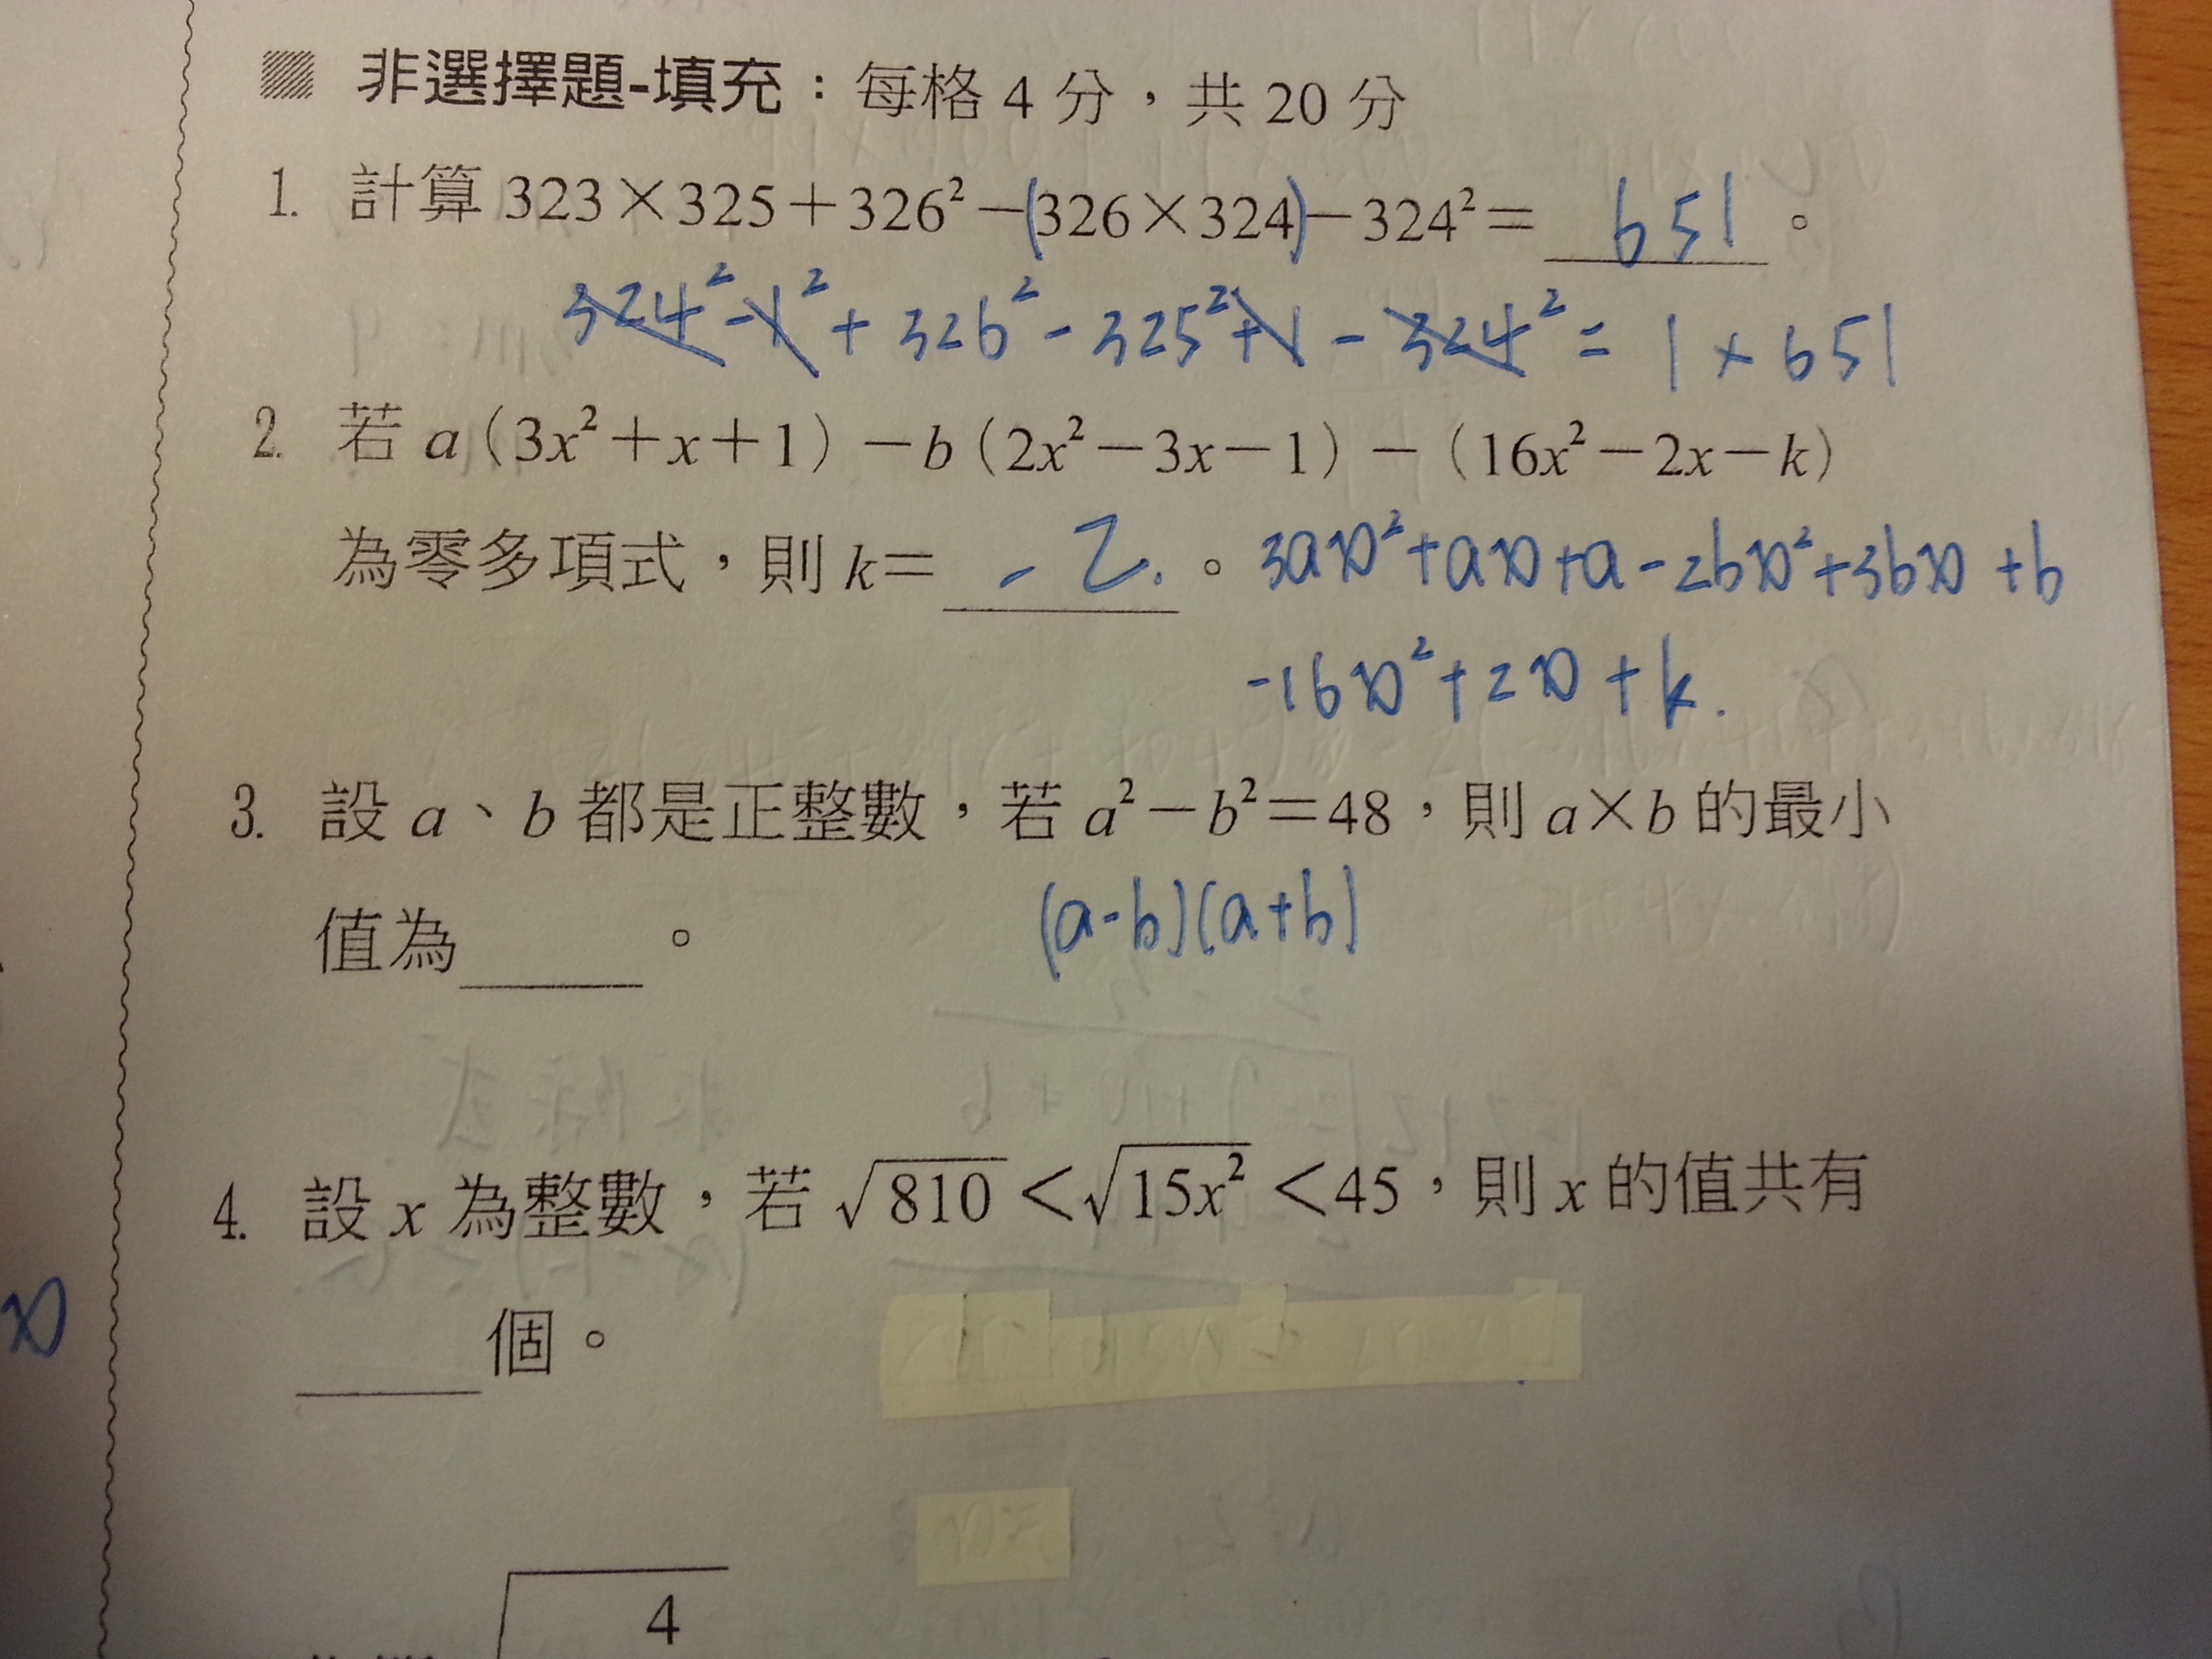 非選擇題-填充：每格 4 分，共 20 分
1. 計算 323×325+326²-(326×324)-324²= 651 。
324²-1²+326²-325²+1-324²=1×651
2. 若 a(3x²+x+1)-b(2x²-3x-1)-(16x²-2x-k)
為零多項式，則 k= -2. 。 3ax²+ax+a-2bx²+3bx+b
-16x²+2x+k.
3. 設 a、b 都是正整數，若 a²-b²=48，則 a×b 的最小
值為____。 (a-b)(a+b)
4. 設 x 為整數，若 √810<√15x²<45，則 x 的值共有
____個。
x
4